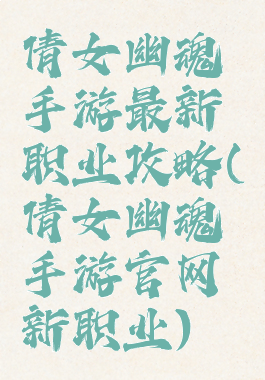 倩女幽魂
手游最新
职业攻略(
倩女幽魂
手游官网
新职业)